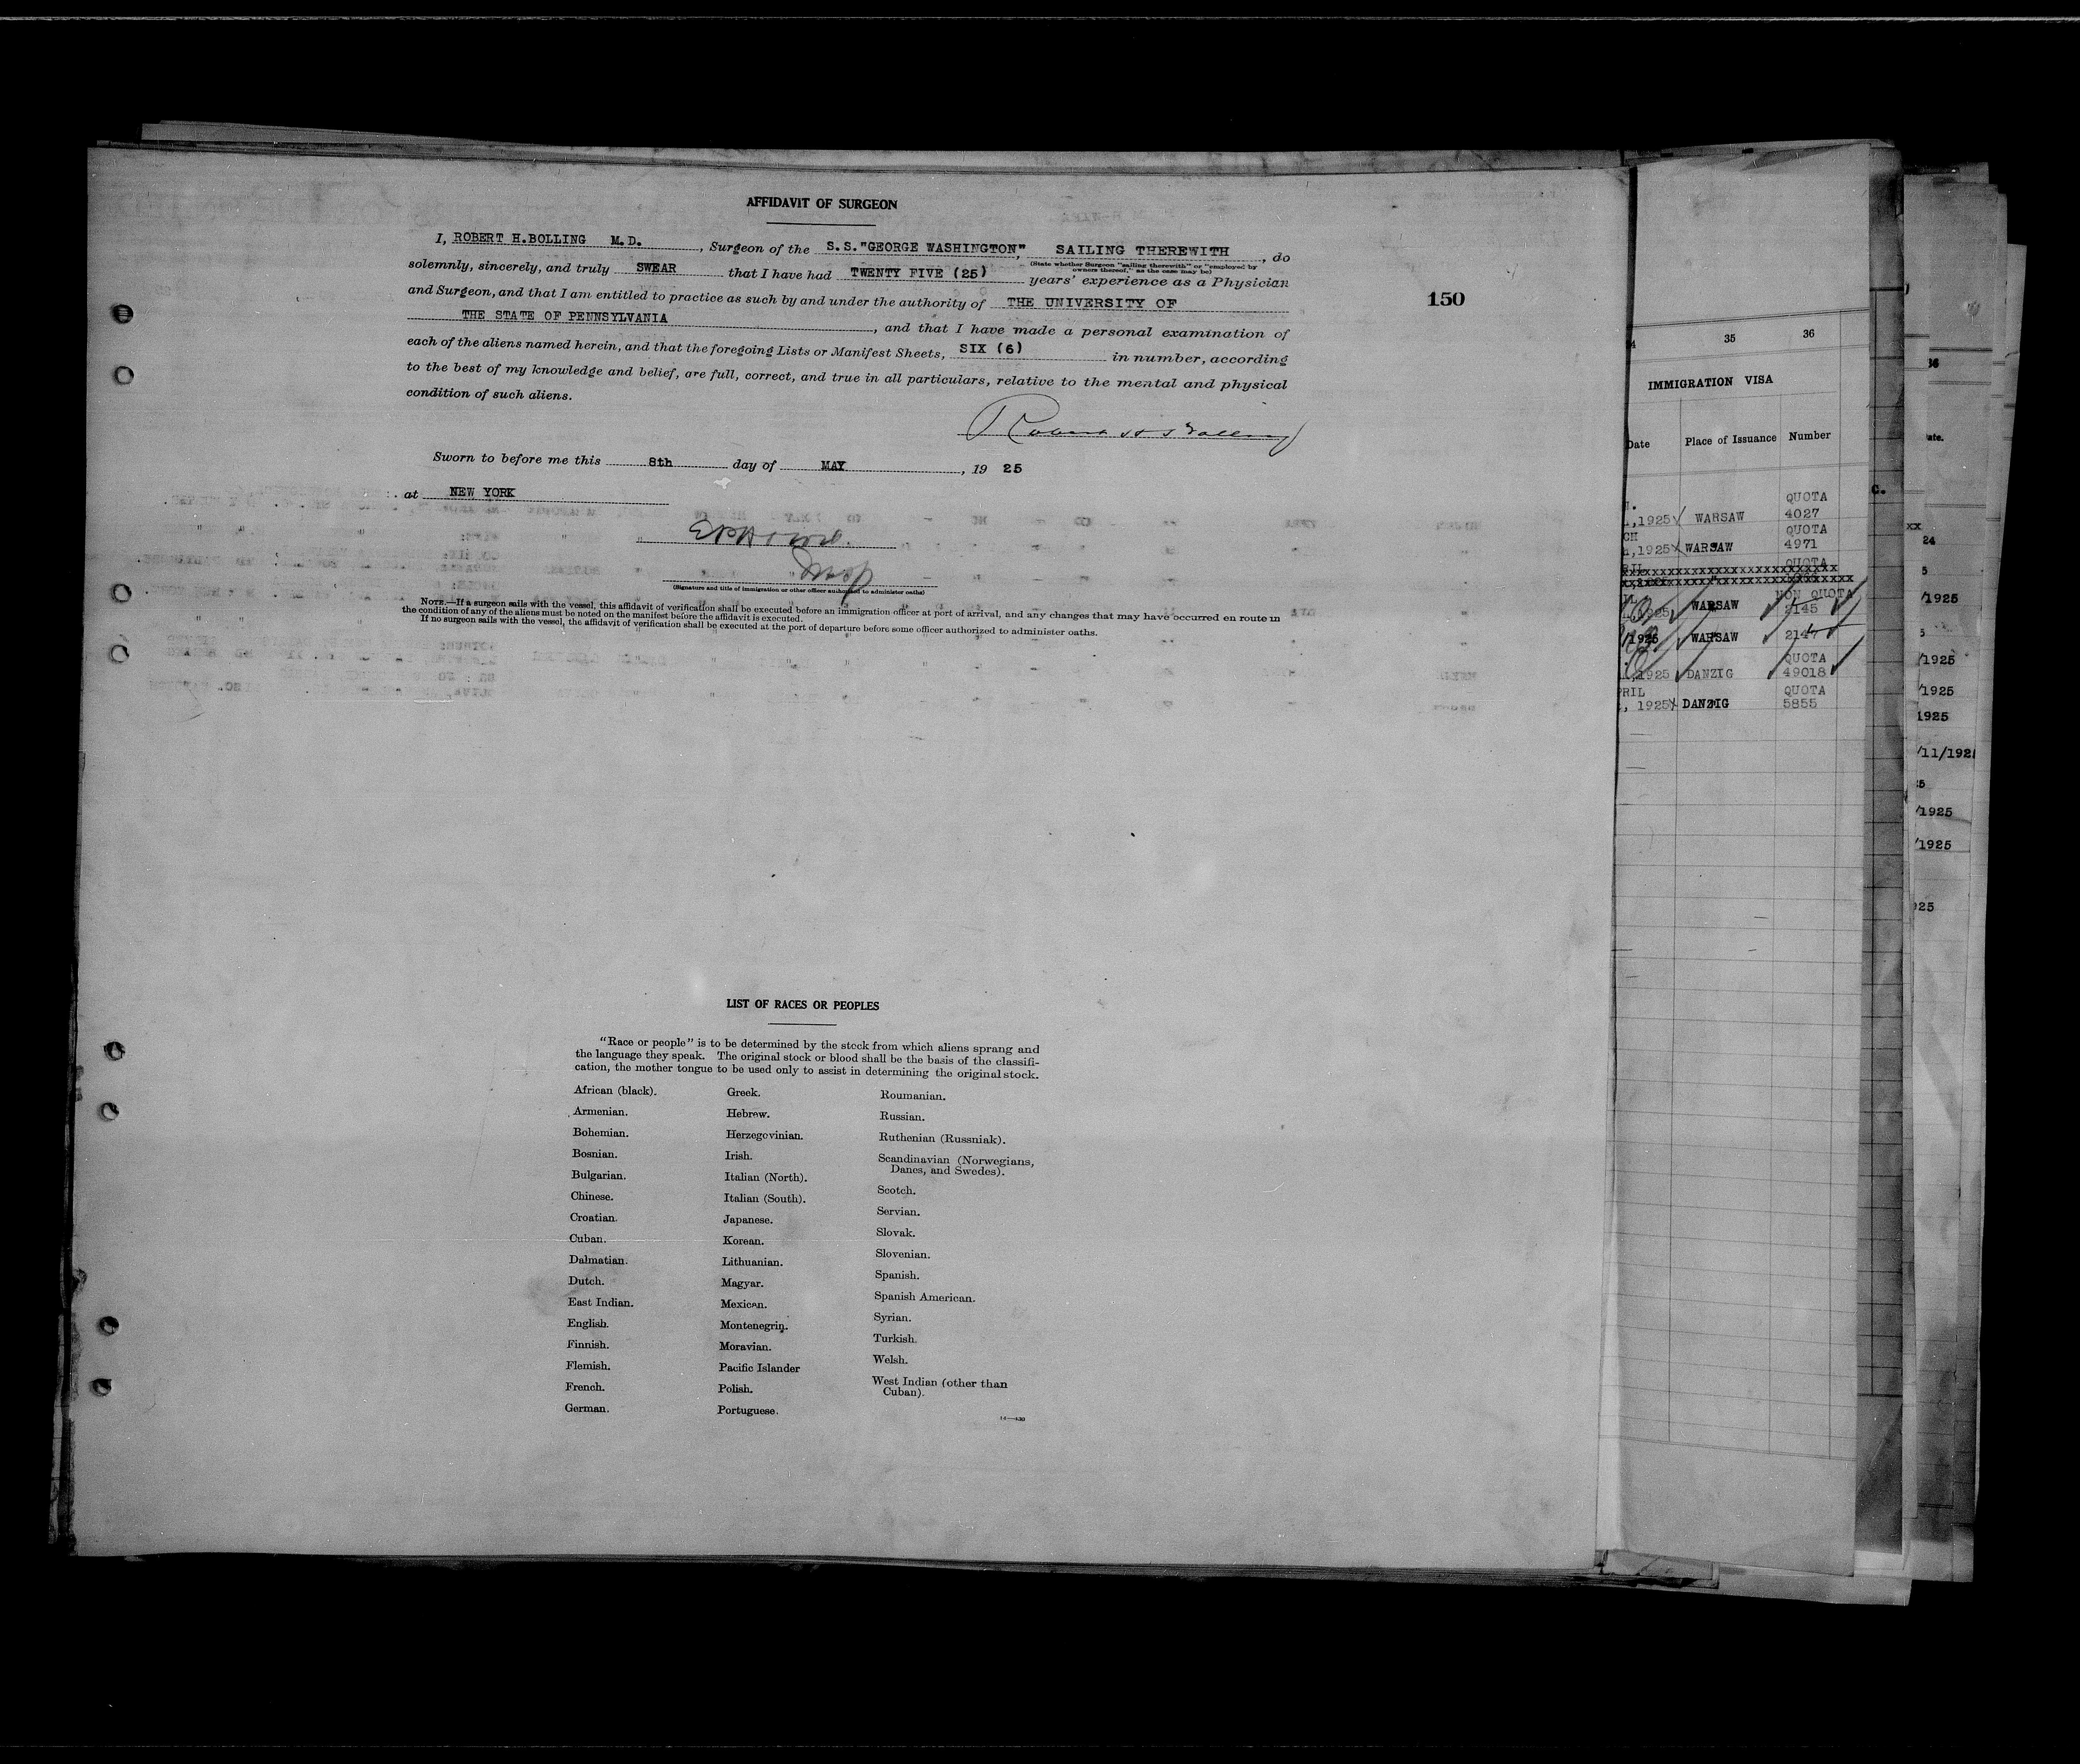 AFFIDAVIT OF SURGEON
I, ROBERT H.BOLLING M.D. , Surgeon of the S.S."GEORGE WASHINGTON", SAILING THEREWITH , do
(State whether Surgeon "sailing therewith" or "employed by
owners thereof," as the case may be)
solemnly, sincerely, and truly SWEAR that I have had TWENTY FIVE (25) years' experience as a Physician
and Surgeon, and that I am entitled to practice as such by and under the authority of THE UNIVERSITY OF
THE STATE OF PENNSYLVANIA , and that I have made a personal examination of
each of the aliens named herein, and that the foregoing Lists or Manifest Sheets, SIX (6) in number, according
to the best of my knowledge and belief, are full, correct, and true in all particulars, relative to the mental and physical
condition of such aliens.
Robert H Bolling
Sworn to before me this 8th day of MAY , 19 25
at NEW YORK
(Signature and title of immigration or other officer authorized to administer oaths)
NOTE.—If a surgeon sails with the vessel, this affidavit of verification shall be executed before an immigration officer at port of arrival, and any changes that may have occurred en route in
the condition of any of the aliens must be noted on the manifest before the affidavit is executed.
If no surgeon sails with the vessel, the affidavit of verification shall be executed at the port of departure before some officer authorized to administer oaths.
150
LIST OF RACES OR PEOPLES
"Race or people" is to be determined by the stock from which aliens sprang and
the language they speak. The original stock or blood shall be the basis of the classifi-
cation, the mother tongue to be used only to assist in determining the original stock.
African (black).
Armenian.
Bohemian.
Bosnian.
Bulgarian.
Chinese.
Croatian.
Cuban.
Dalmatian.
Dutch.
East Indian.
English.
Finnish.
Flemish.
French.
German.
Greek.
Hebrew.
Herzegovinian.
Irish.
Italian (North).
Italian (South).
Japanese.
Korean.
Lithuanian.
Magyar.
Mexican.
Montenegrin.
Moravian.
Pacific Islander
Polish.
Portuguese.
Roumanian.
Russian.
Ruthenian (Russniak).
Scandinavian (Norwegians,
Danes, and Swedes).
Scotch.
Servian.
Slovak.
Slovenian.
Spanish.
Spanish American.
Syrian.
Turkish.
Welsh.
West Indian (other than
Cuban).
35 36
IMMIGRATION VISA
Date Place of Issuance Number
QUOTA
,1925 WARSAW 4027
QUOTA
,1925 WARSAW 4971
QUOTA
NON QUOTA
1925 WARSAW 2145
1925 WARSAW 2147
QUOTA
,1925 DANZIG 49018
QUOTA
, 1925 DANZIG 5855
24
5
/1925
5
/1925
/1925
1925
/11/192
5
/1925
/1925
25